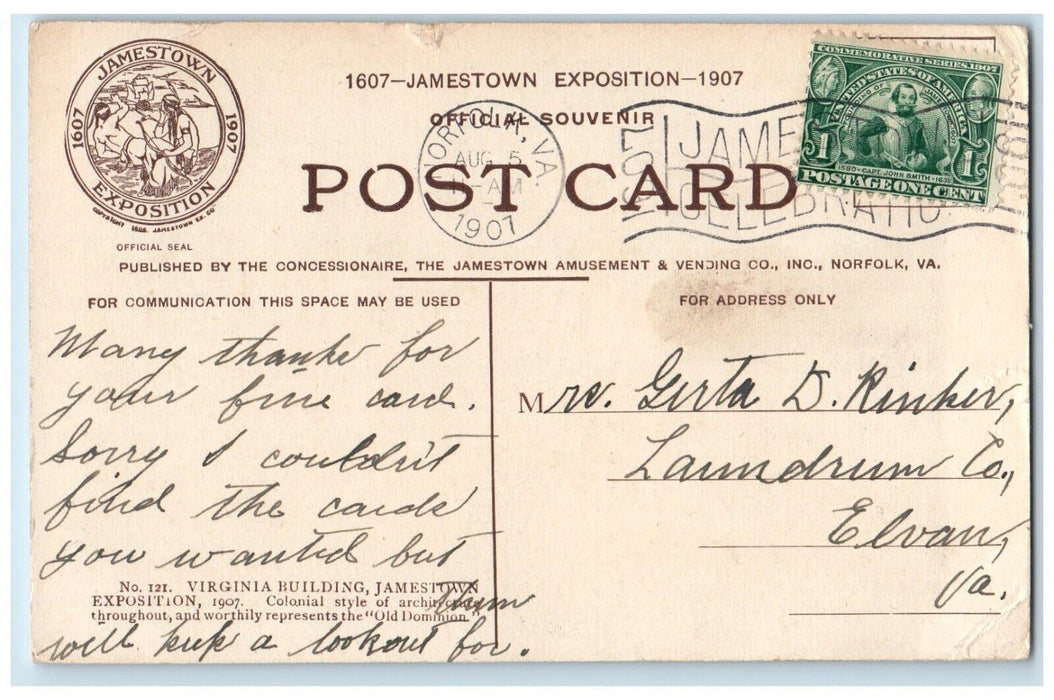 JAMESTOWN
1607 1907
EXPOSITION
COPYRIGHT 1906 JAMESTOWN EX. CO
OFFICIAL SEAL
1607—JAMESTOWN EXPOSITION—1907
OFFICIAL SOUVENIR
POST CARD
NORFOLK, VA.
AUG 5
AM
1907
COMMEMORATIVE SERIES 1907
UNITED STATES OF AMERICA
FOUNDING OF JAMESTOWN
1580 • CAPT. JOHN SMITH • 1631
1 1
POSTAGE ONE CENT
PUBLISHED BY THE CONCESSIONAIRE, THE JAMESTOWN AMUSEMENT & VENDING CO., INC., NORFOLK, VA.
FOR COMMUNICATION THIS SPACE MAY BE USED
FOR ADDRESS ONLY
Many thanks for
your fine card.
Sorry I couldn't
find the cards
you wanted but
will keep a lookout for.
No. 121. VIRGINIA BUILDING, JAMESTOWN
EXPOSITION, 1907. Colonial style of architecture
throughout, and worthily represents the "Old Dominion"
Mrs. Gerta D. Rinker,
Laundrum Co.,
Elvan,
Va.